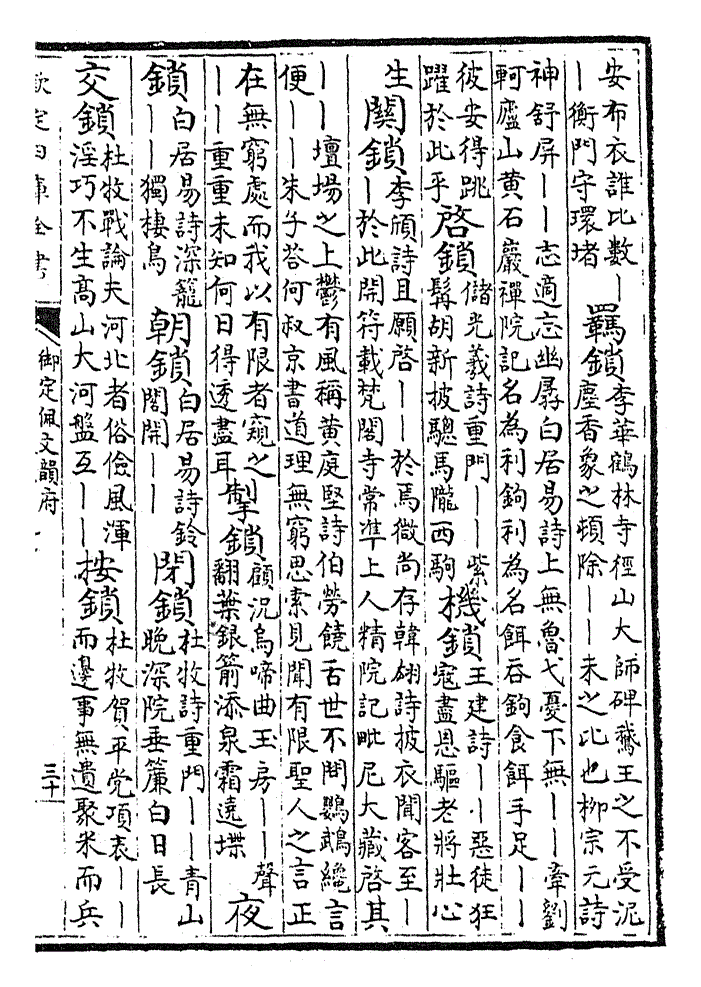 安布衣誰比數―
―衡門守環堵
羈鎖
李華鶴林寺徑山大師碑鵞王之不受泥
塵香象之頓除――未之比也柳宗元詩
神舒屏――志適忘幽孱白居易詩上無魯弋憂下無――牽劉
軻廬山黄石巖禪院記名為利鉤利為名餌吞鉤食餌手足――
彼安得跳
躍於此乎
啓鎖
儲光羲詩重門――紫
髯胡新披驄馬隴西駒
機鎖
王建詩――惡徒狂
寇盡恩驅老將壯心
生
關鎖
李頎詩且願啓――於焉微尚存韓翃詩披衣聞客至―
―於此開符載梵閣寺常凖上人精院記毗尼大藏啓其
――壇場之上鬱有風稱黄庭堅詩伯勞饒舌世不問鸚鵡纔言
便――朱子荅何叔京書道理無窮思索見聞有限聖人之言正
在無窮處而我以有限者窺之
――重重未知何日得透盡耳
掣鎖
顧況烏啼曲玉房――聲
翻葉銀箭添泉霜遶堞
夜
鎖
白居易詩深籠
――獨棲鳥
朝鎖
白居易詩鈴
閣開――
閉鎖
杜牧詩重門――青山
晚深院垂簾白日長
交鎖
杜牧戰論夫河北者俗儉風渾
淫巧不生髙山大河盤互――
按鎖
杜牧賀平党項表――
而邊事無遺聚米而兵
欽定四庫全書
御定佩文韻府
三十